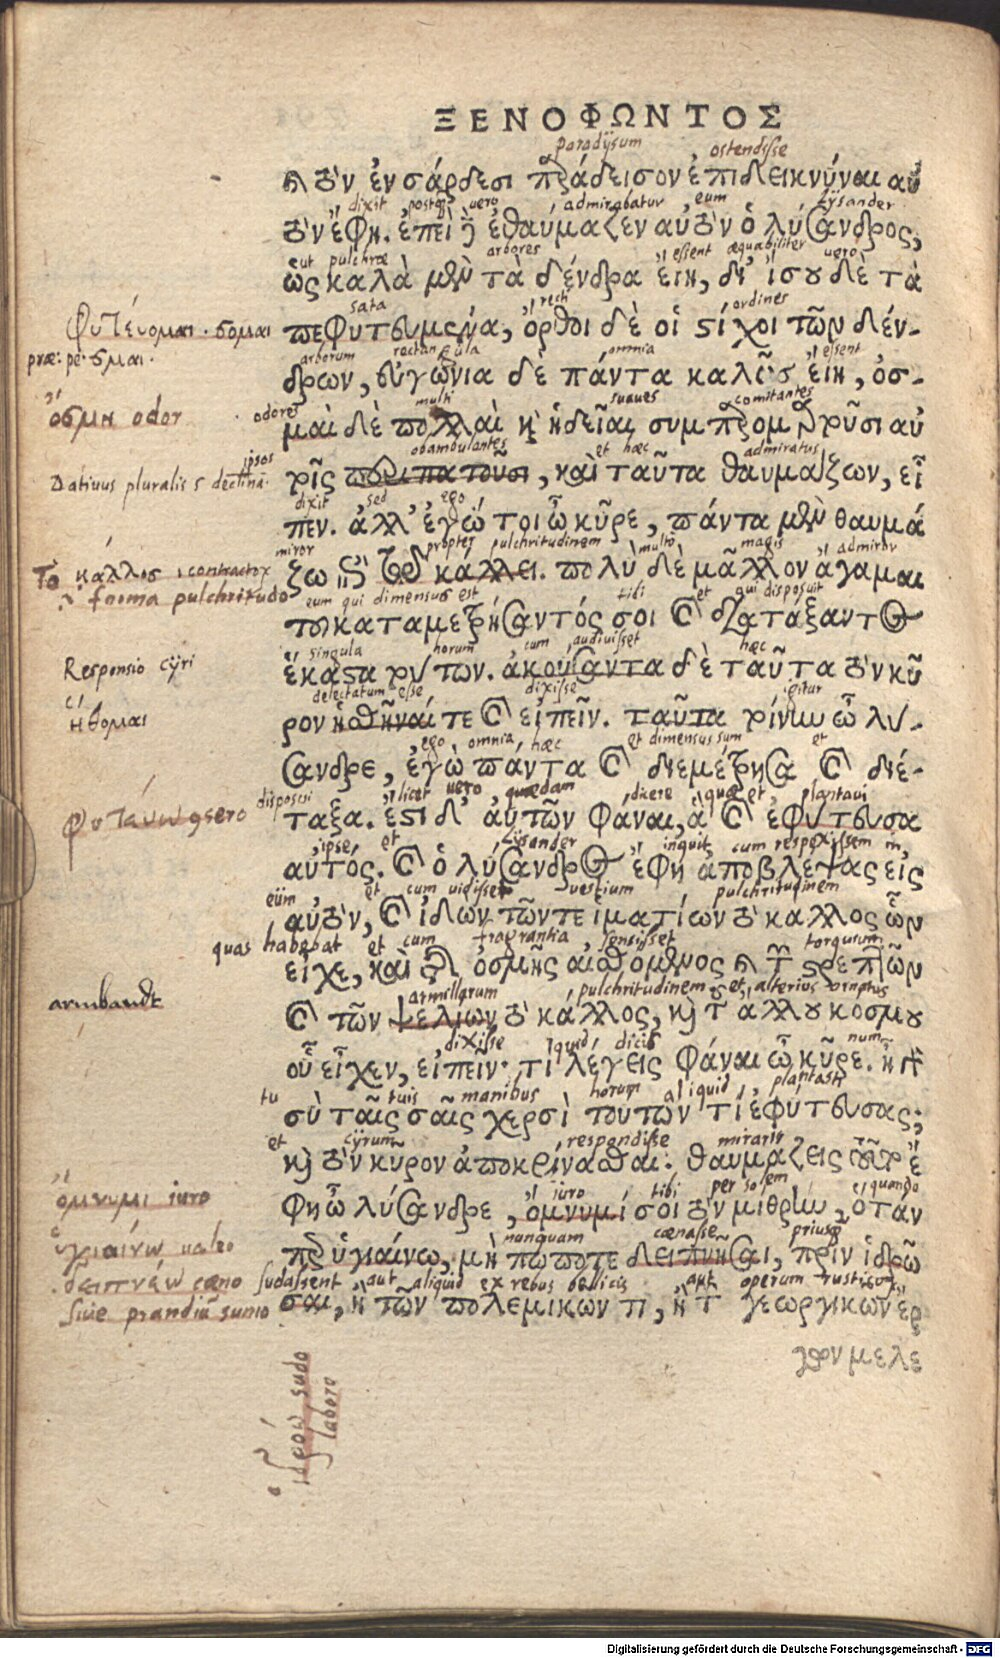 ΞΕΝΟΦΩΝΤΟΣ
paradijsum ostendisse
καὶ τὸν ἐν σάρδεσι παράδεισον ἐπιδεικνύναι αὐ
dixit postq vero admirabatur eum Lysander
τὸν ἔφη. ἐπεὶ δὲ ἐθαύμαζεν αὐτὸν ὁ λύσανδρος,
ut pulchræ arbores essent æquabiliter vero
ὡς καλὰ μὲν τὰ δένδρα εἴη, δι' ἴσου δὲ τὰ
sata recti ordines
Φυτεύομαι . σομαι
πεφυτευμένα, ὀρθοὶ δὲ οἱ στίχοι τῶν δέν-
præ: pe· σμαι .
arborum rectangula omnia essent
δρων, εὐγώνια δὲ πάντα καλῶς εἴη, ὀσ-
ὄσμη odor
odores multi suaves comitantes
μαὶ δὲ πολλαὶ καὶ ἡδεῖαι συμπαρομαρτοῦσι αὐ
ipsos obambulantes et hæc admiratus
Dativus pluralis 5 declina·
τοῖς περιπατοῦσι, καὶ ταῦτα θαυμάζων, εἶ
dixit sed ego
πεν. ἀλλ' ἐγώ τοι ὦ κῦρε, πάντα μὲν θαυμά
miror propter pulchritudinem multo magis admiror
Το κάλλοσ , contractor
ζω ἐπὶ τῷ κάλλει. πολὺ δὲ μᾶλλον ἄγαμαι
forma pulchritudo
eum qui dimensus est tibi et qui disposuit
τοῦ καταμετρήσαντός σοι καὶ διατάξαντος
singula horum cum audivisset hæc
Responsio cyri
ἕκαστα τούτων. ἀκούσαντα δὲ ταῦτα τὸν κῦ
delectatum esse dixisse igitur
ἡθομαι
ρον ἡσθῆναί τε καὶ εἰπεῖν. ταῦτα τοίνυν ὦ λύ-
ego omnia hæc et dimensus sum et
σανδρε, ἐγὼ πάντα καὶ διεμέτρησα καὶ διέ-
disposui licet vero quædam dicere quæ et plantavi
ταξα. ἔστι δ' αὐτῶν φάναι, ἃ καὶ ἐφύτευσα
ipse et Lysander inquit cum respexissem in
αὐτός. καὶ ὁ λύσανδρος ἔφη ἀποβλέψας εἰς
eum et cum vidisset vestium pulchritudinem
αὐτὸν, καὶ ἰδὼν τῶν τε ἱματίων τὸ κάλλος ὧν
quas habebat et cum fragrantia sensisset torquium
εἶχε, καὶ τῆς ὀσμῆς αἰσθόμενος καὶ τῶν στρεπτῶν
armillarum pulchritudinem et alterius ornatus
armbandt
καὶ τῶν ψελίων τὸ κάλλος, καὶ τοῦ ἄλλου κόσμου
dixisse quid dicis num
οὗ εἶχεν, εἰπεῖν· τί λέγεις φάναι ὦ κῦρε. ἦ γὰρ
tu tuis manibus horum aliquid plantasti
σὺ ταῖς σαῖς χερσὶ τούτων τὶ ἐφύτευσας;
et cyrum respondisse miraris
καὶ τὸν κῦρον ἀποκρίνασθαι· θαυμάζεις τοῦτο ἔ
iuro tibi per solem quando
ὄμνυμι iuro
φη ὦ λύσανδρε, ὄμνυμί σοι τὸν μίθρην, ὅταν
nunquam cænasse priusq
ὑγιαίνω valeo
περ ὑγιαίνω, μὴ πώποτε δειπνῆσαι, πρὶν ἱδρῶ
δειπνέω cæno
sudassent aut aliquid ex rebus bellicis aut operum rusticorum
sive prandiu sumo
σαι, ἢ τῶν πολεμικῶν τι, ἢ τῶν γεωργικῶν ἔρ
γων μελε
ἱδρόω sudo
laboro
Digitalisierung gefördert durch die Deutsche Forschungsgemeinschaft - DFG